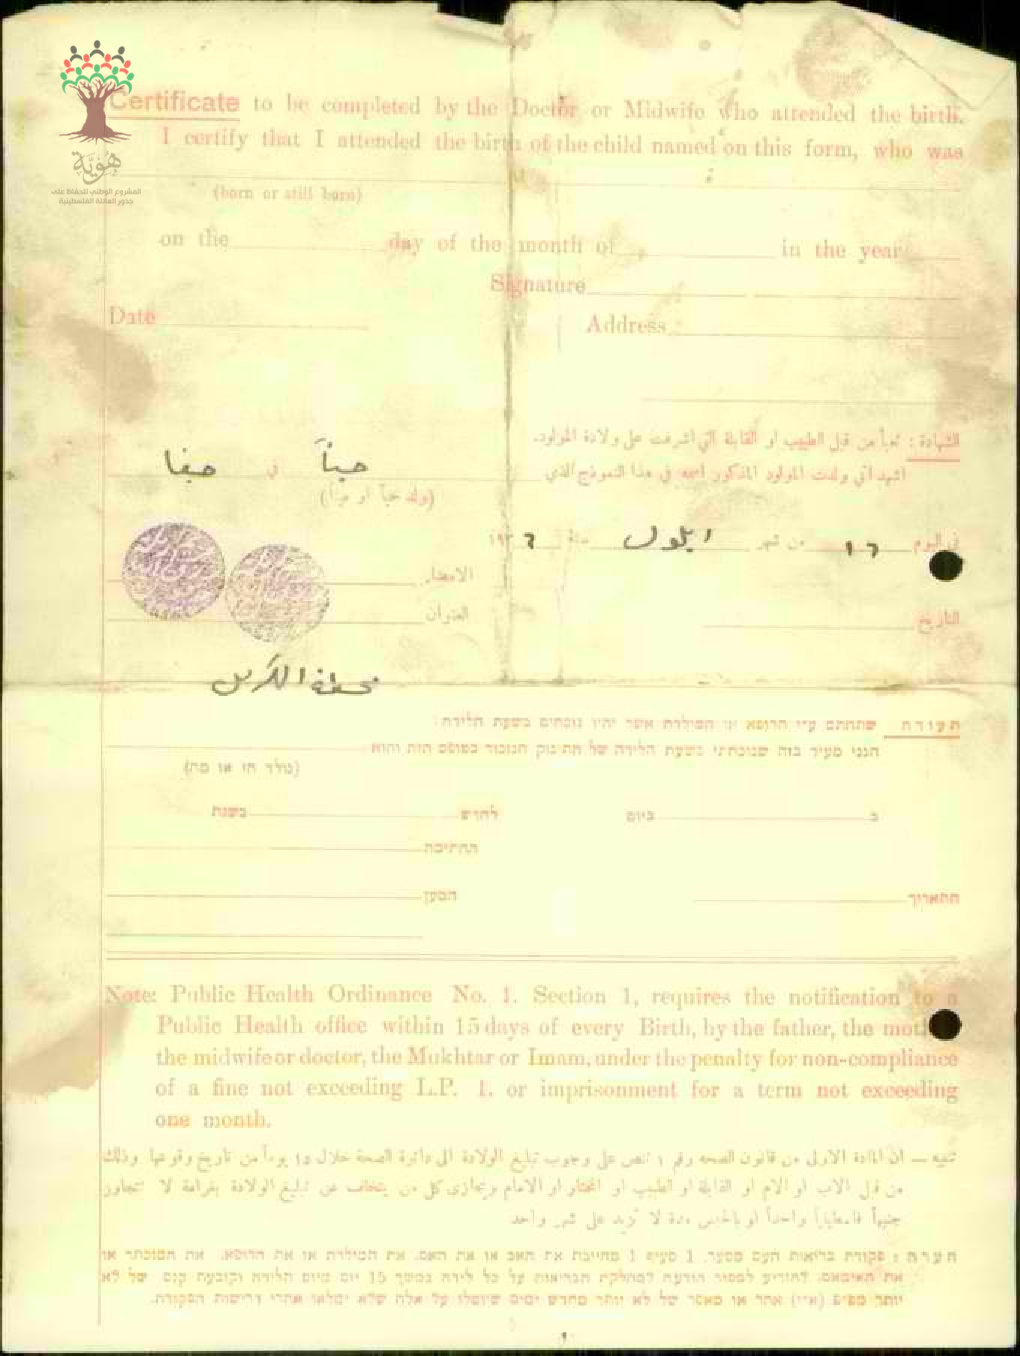 هُويَّة
المشروع الوطني للحفاظ على
جذور العائلة الفلسطينية
Certificate to be completed by the Doctor or Midwife who attended the birth.
I certify that I attended the birth of the child named on this form, who was
(born or still born)
on the day of the month of in the year
Signature
Date Address
الشهادة : تعبأ من قبل الطبيب او القابلة التي اشرفت على ولادة المولود.
اشهد اني ولدت المولود المذكور اسمه في هذا النموذج الذي حياً في حيفا
(ولد حياً او ميتاً)
في اليوم ١٦ من شهر ايلول سنة ١٩٣٦
الامضاء
التاريخ العنوان
محطة الكرمل
תעודה שתחתם ע״י הרופא או המילדת אשר יהיו נוכחים בשעת הלידה:
הנני מעיד בזה שנוכחתי בשעת הלידה של התינוק הנזכר בטופס הזה והוא
(נולד חי או מת)
ב ביום לחדש בשנת
החתימה
התאריך המען
Note: Public Health Ordinance No. 1. Section 1, requires the notification to a
Public Health office within 15 days of every Birth, by the father, the
the midwife or doctor, the Mukhtar or Imam, under the penalty for non-compliance
of a fine not exceeding L.P. 1. or imprisonment for a term not exceeding
one month.
تنبيه — ان المادة الاولى من قانون الصحة رقم ١ تنص على وجوب تبليغ الولادة الى دائرة الصحة خلال ١٥ يوماً من تاريخ وقوعها وذلك
من قبل الاب او الام او القابلة او الطبيب او المختار او الامام ويجازى كل من يتخلف عن تبليغ الولادة بغرامة لا تتجاوز
جنيهاً فلسطينياً واحداً او بالحبس مدة لا تزيد على شهر واحد
הערה : פקודת בריאות העם מספר. 1 סעיף 1 מחייבת את האב או את האם. את המילדת או את הרופא. את המוכתר או
את האימאם. להודיע למסור הודעה למחלקת הבריאות על כל לידה במשך 15 יום מיום הלידה וקובעת קנס של לא
יותר